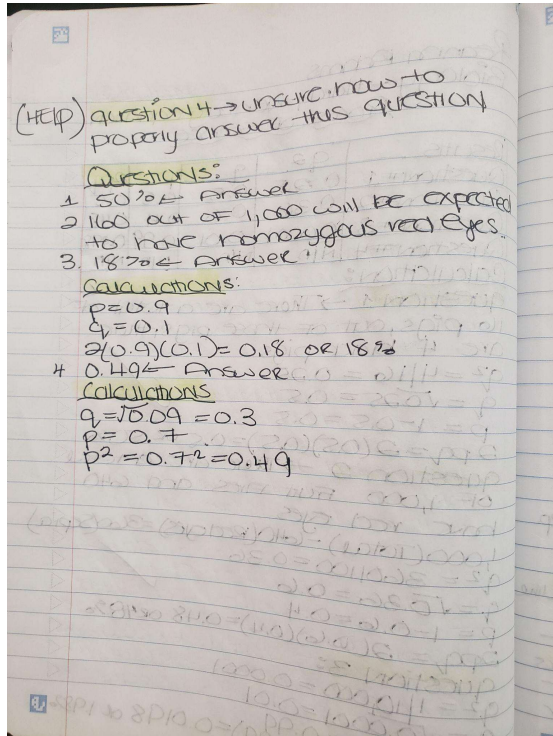 (HELP) question 4 → unsure how to
properly answer this question
Questions:
1 50% ← Answer
2 160 out of 1,000 will be expected
to have homozygous red eyes.
3. 18% ← Answer
Calculations:
p=0.9
q=0.1
2(0.9)(0.1)=0.18 OR 18%
4 0.49 ← Answer
Calculations
q=√0.09 =0.3
p= 0.7
p² =0.7²=0.49